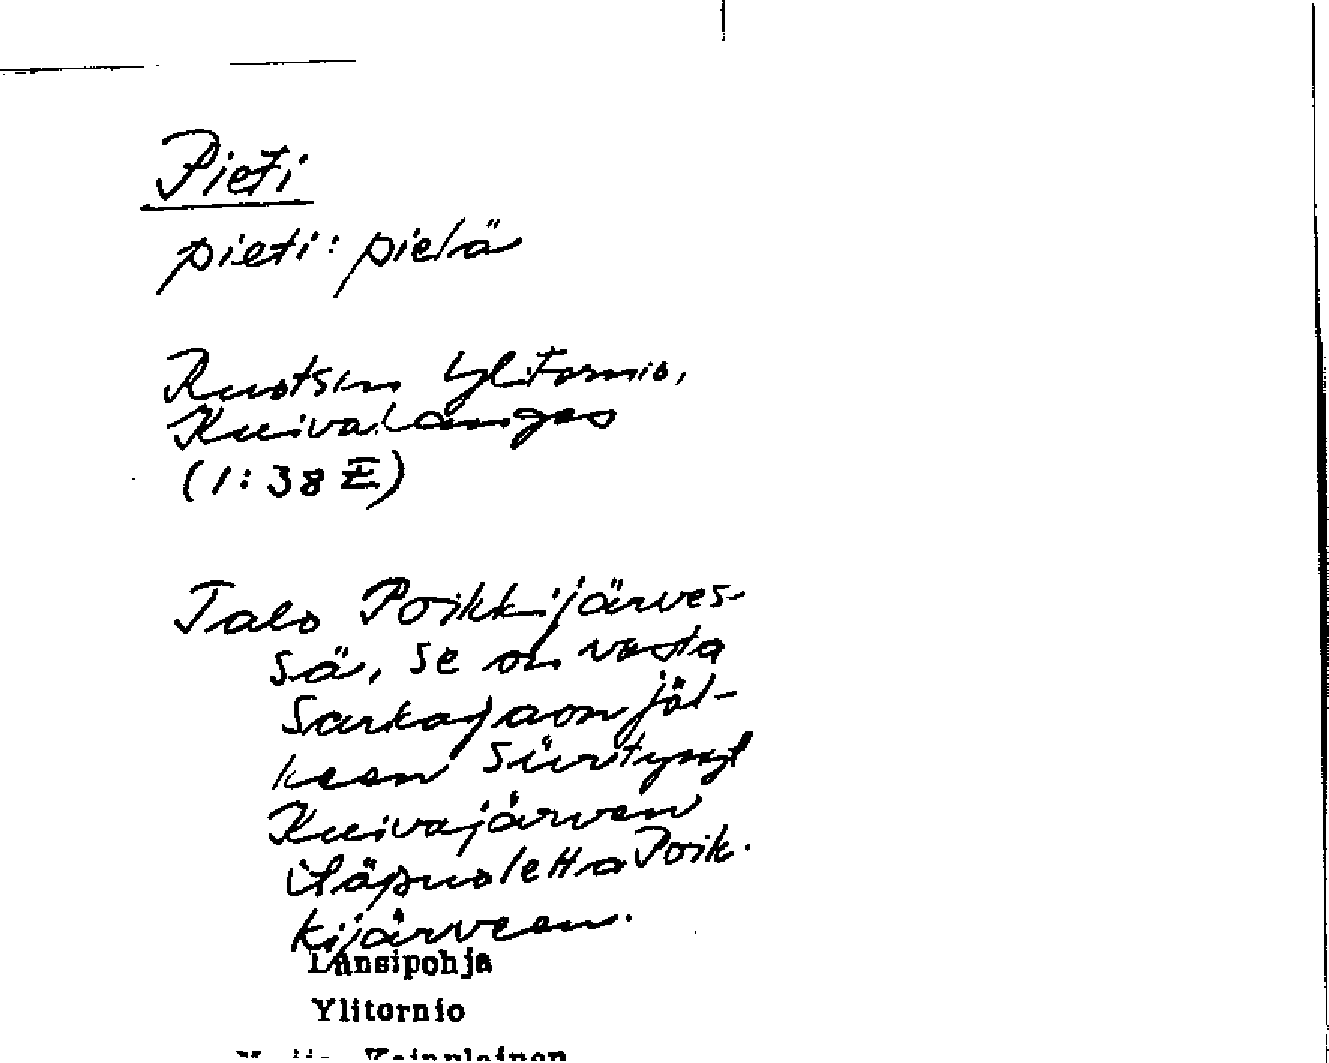 Pieti
pieti: pietä
Ruotsin Ylitornio,
Kuivalangas
(1:38 E)
Talo Poikkijärves-
sä, se on vasta
Sarkajaon jäl-
keen siirtynyt
Kuivajärven
itäpuolelta Poik-
kijärveen.
Länsipohja
Ylitornio